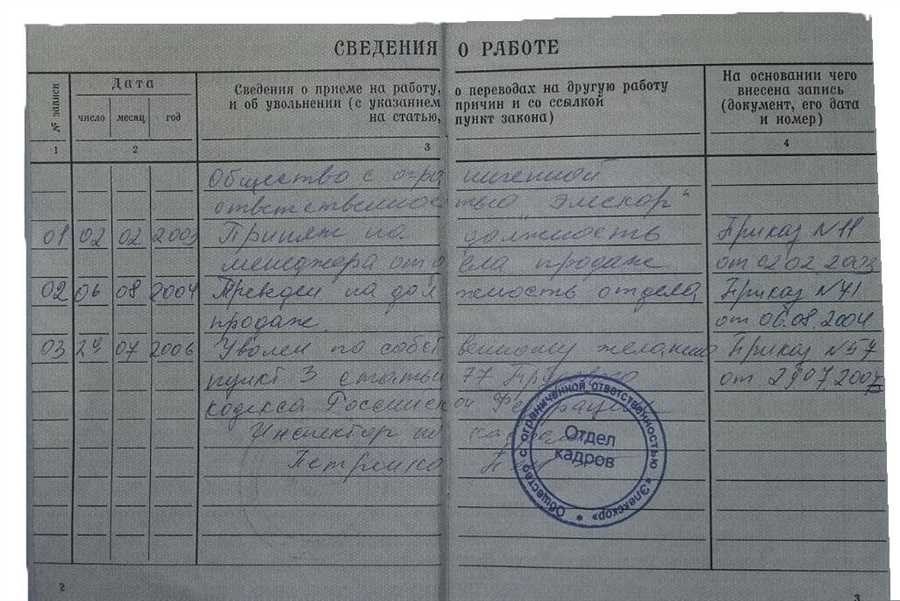 СВЕДЕНИЯ О РАБОТЕ
№ записи
Дата
число месяц год
Сведения о приеме на работу, о переводах на другую работу
и об увольнении (с указанием причин и со ссылкой
на статью, пункт закона)
На основании чего
внесена запись
(документ, его дата
и номер)
1 2 3 4
Общество с огра ниченной
ответственнос тью "Элекскор"
01 02 02 2003 Принят на должность Приказ N 11
менеджера от дела продаж от 02.02.2003
02 06 08 2004 на дол жность отдела Приказ N 41
продаж. от 06.08.2004
03 29 07 2006 Уволен по собст венному желанию Приказ N 57
пункт 3 статьи 77 Трудового от 29 07 2007
кодекса Российск ой Федерации
Инспектор по кадрам
Отдел
кадров
Общество с ограниченной ответственностью «Элекскор»
2 3